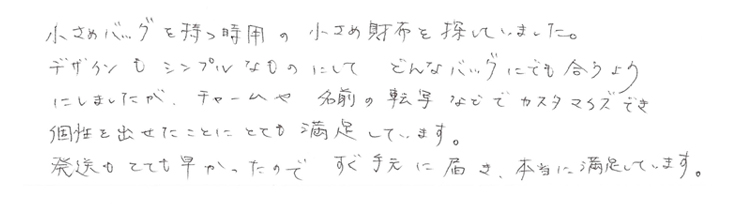 小さめバッグを持つ時用の小さめ財布を探していました。
デザインもシンプルなものにして どんなバッグにでも合うよう
にしましたが、チャームや 名前の転写などでカスタマイズでき
個性を出せたことにとても満足しています。
発送もとても早かったので すぐ手元に届き、本当に満足しています。